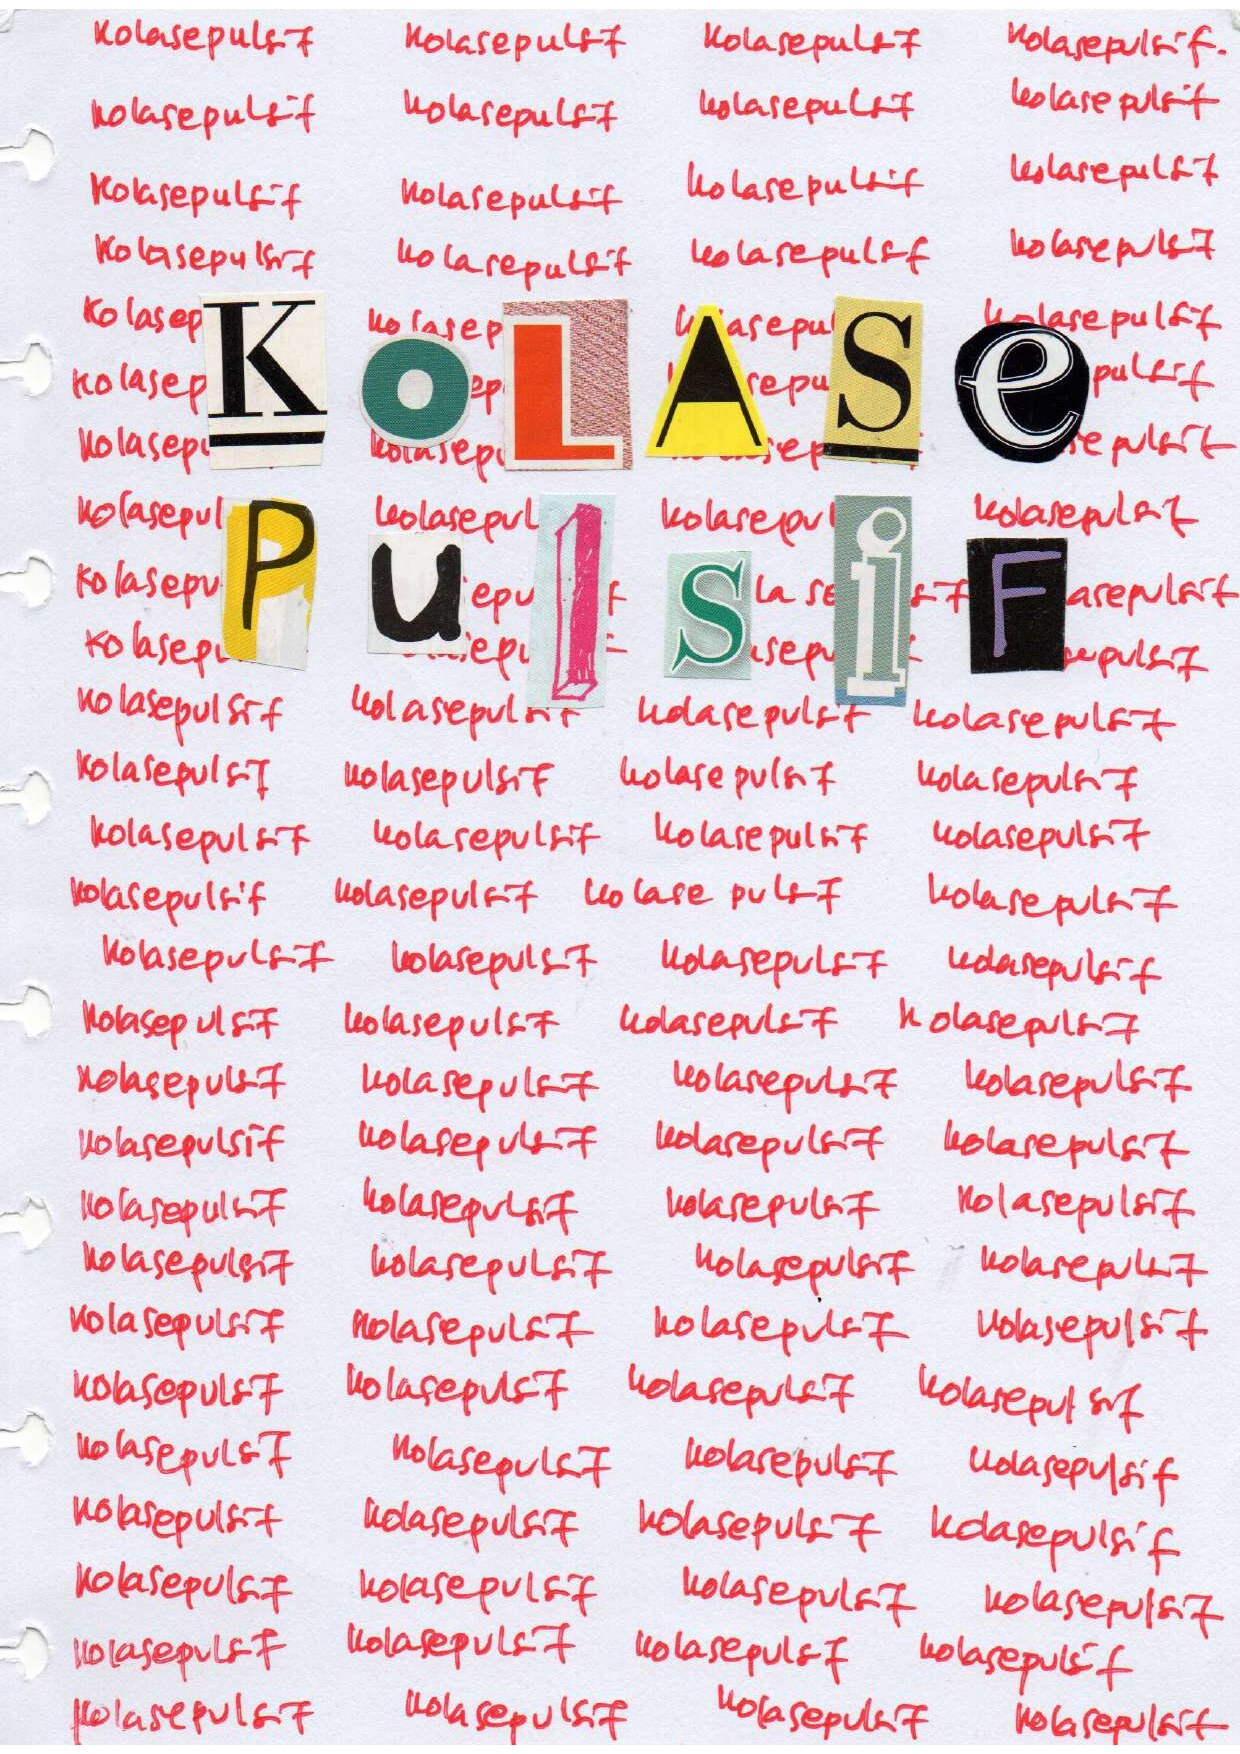 kolasepulsif kolasepulsif kolasepulsif kolasepulsif.
kolasepulsif kolasepulsif kolasepulsif kolasepulsif
kolasepulsif kolasepulsif kolasepulsif kolasepulsif
kolasepulsif kolasepulsif kolasepulsif kolasepulsif
kolasep kolasep asepu kolasepulsif
kolasep ep sepu pulsif
KOLASe
kolasepu kolasepu sep epulsif
kolasepul kolasepul kolasepul kolasepulsif
PulsiF
kolasepu epu f la se asepulsif
kolasepu sepu asepu sepulsif
kolasepulsif kolasepulsif kolasepulsif kolasepulsif
kolasepulsif kolasepulsif kolasepulsif kolasepulsif
kolasepulsif kolasepulsif kolasepulsif kolasepulsif
kolasepulsif kolasepulsif kolase pulsif kolasepulsif
kolasepulsif kolasepulsif kolasepulsif kolasepulsif
kolasepulsif kolasepulsif kolasepulsif kolasepulsif
kolasepulsif kolasepulsif kolasepulsif kolasepulsif
kolasepulsif kolasepulsif kolasepulsif kolasepulsif
kolasepulsif kolasepulsif kolasepulsif kolasepulsif
kolasepulsif kolasepulsif kolasepulsif kolasepulsif
kolasepulsif kolasepulsif kolasepulsif kolasepulsif
kolasepulsif kolasepulsif kolasepulsif kolasepulsif
kolasepulsif kolasepulsif kolasepulsif kolasepulsif
kolasepulsif kolasepulsif kolasepulsif kolasepulsif
kolasepulsif kolasepulsif kolasepulsif kolasepulsif
kolasepulsif kolasepulsif kolasepulsif kolasepulsif
kolasepulsif kolasepulsif kolasepulsif kolasepulsif